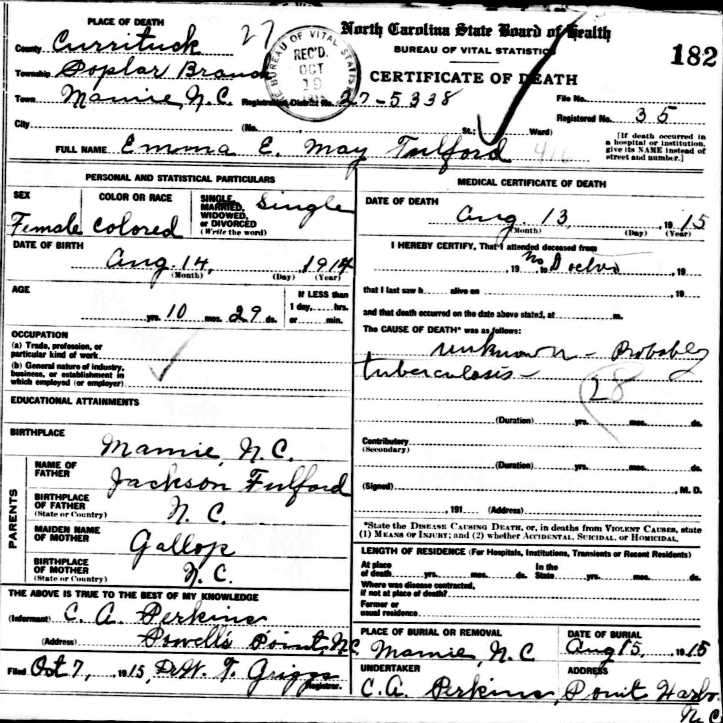 PLACE OF DEATH
North Carolina State Board of Health
BUREAU OF VITAL STATISTICS
CERTIFICATE OF DEATH
182
County Currituck
27
BUREAU OF VITAL STATIS
REC'D.
OCT
19
Township Poplar Branch
Town Mamie, N.C. Registration District No. 27-5338 File No.
Registered No. 35
City (No. St.; Ward)
[If death occurred in a hospital or institution, give its NAME instead of street and number.]
FULL NAME Emma E. May Fulford
PERSONAL AND STATISTICAL PARTICULARS
SEX
Female
COLOR OR RACE
colored
SINGLE, MARRIED, WIDOWED, or DIVORCED (Write the word)
Single
DATE OF BIRTH
Aug. 14, 1914
(Month) (Day) (Year)
AGE
yrs. 10 mos. 29 ds.
If LESS than
1 day, hrs.
or min.
OCCUPATION
(a) Trade, profession, or
particular kind of work
(b) General nature of industry,
business, or establishment in
which employed (or employer)
EDUCATIONAL ATTAINMENTS
BIRTHPLACE
Mamie, N.C.
PARENTS
NAME OF FATHER
Jackson Fulford
BIRTHPLACE OF FATHER
(State or Country)
N.C.
MAIDEN NAME OF MOTHER
Gallop
BIRTHPLACE OF MOTHER
(State or Country)
N.C.
THE ABOVE IS TRUE TO THE BEST OF MY KNOWLEDGE
(Informant) C. A. Perkins
(Address) Powell's Point, NC
Filed Oct 7, 1915, T. Griggs
Registrar.
MEDICAL CERTIFICATE OF DEATH
DATE OF DEATH
Aug. 13, 1915
(Month) (Day) (Year)
I HEREBY CERTIFY, That I attended deceased from
No Doctor
, 19 to , 19
that I last saw h alive on , 19
and that death occurred on the date above stated, at m.
The CAUSE OF DEATH* was as follows:
unknown - Probably
tuberculosis -
28
(Duration) yrs. mos. ds.
Contributory
(Secondary)
(Duration) yrs. mos. ds.
(Signed) , M. D.
, 191 (Address)
*State the DISEASE CAUSING DEATH, or, in deaths from VIOLENT CAUSES, state
(1) MEANS OF INJURY; and (2) whether ACCIDENTAL, SUICIDAL, or HOMICIDAL.
LENGTH OF RESIDENCE (For Hospitals, Institutions, Transients or Recent Residents)
At place
of death yrs. mos. ds.
In the
State yrs. mos. ds.
Where was disease contracted,
if not at place of death?
Former or
usual residence
PLACE OF BURIAL OR REMOVAL
Mamie, N.C
DATE OF BURIAL
Aug 15, 1915
UNDERTAKER
C.A. Perkins,
ADDRESS
Point Harbor
N.C.